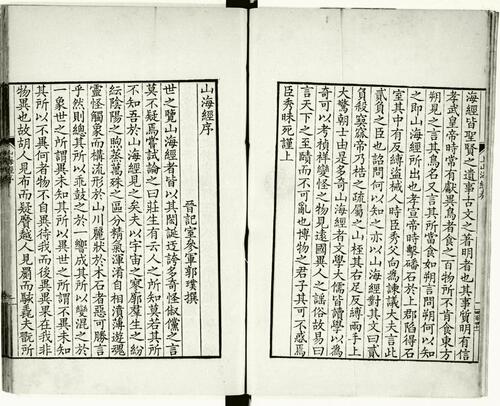 海經皆聖賢之遺事古文之著明者也其事質明有信
孝武皇帝時常有獻異鳥者食之百物所不肯食東方
朔見之言其鳥名又言其所當食如朔言問朔何以知
之即山海經所出也孝宣帝時擊磻石於上郡陷得石
室其中有反縛盜械人時臣秀父向為諫議大夫言此
貳負之臣也詔問何以知之亦以山海經對其文曰貳
負殺窫窳帝乃梏之疏屬之山桎其右足反縛兩手上
大驚朝士由是多奇山海經者文學大儒皆讀學以為
奇可以考禎祥變怪之物見遠國異人之謠俗故易曰
言天下之至賾而不可亂也博物之君子其可不惑焉
臣秀昧死謹上
山海經序
晉記室參軍郭璞撰
世之覽山海經者皆以其閎誕迂誇多奇怪俶儻之言
莫不疑焉嘗試論之曰莊生有云人之所知莫若其所
不知吾於山海經見之矣夫以宇宙之寥廓羣生之紛
紜陰陽之煦蒸萬殊之區分精氣渾淆自相濆薄遊魂
靈怪觸象而構流形於山川麗狀於木石者惡可勝言
乎然則總其所以乖鼓之於一響成其所以變混之於
一象世之所謂異未知其所以異世之所謂不異未知
其所以不異何者物不自異待我而後異異果在我非
物異也故胡人見布而疑黂越人見罽而駭毳夫翫所